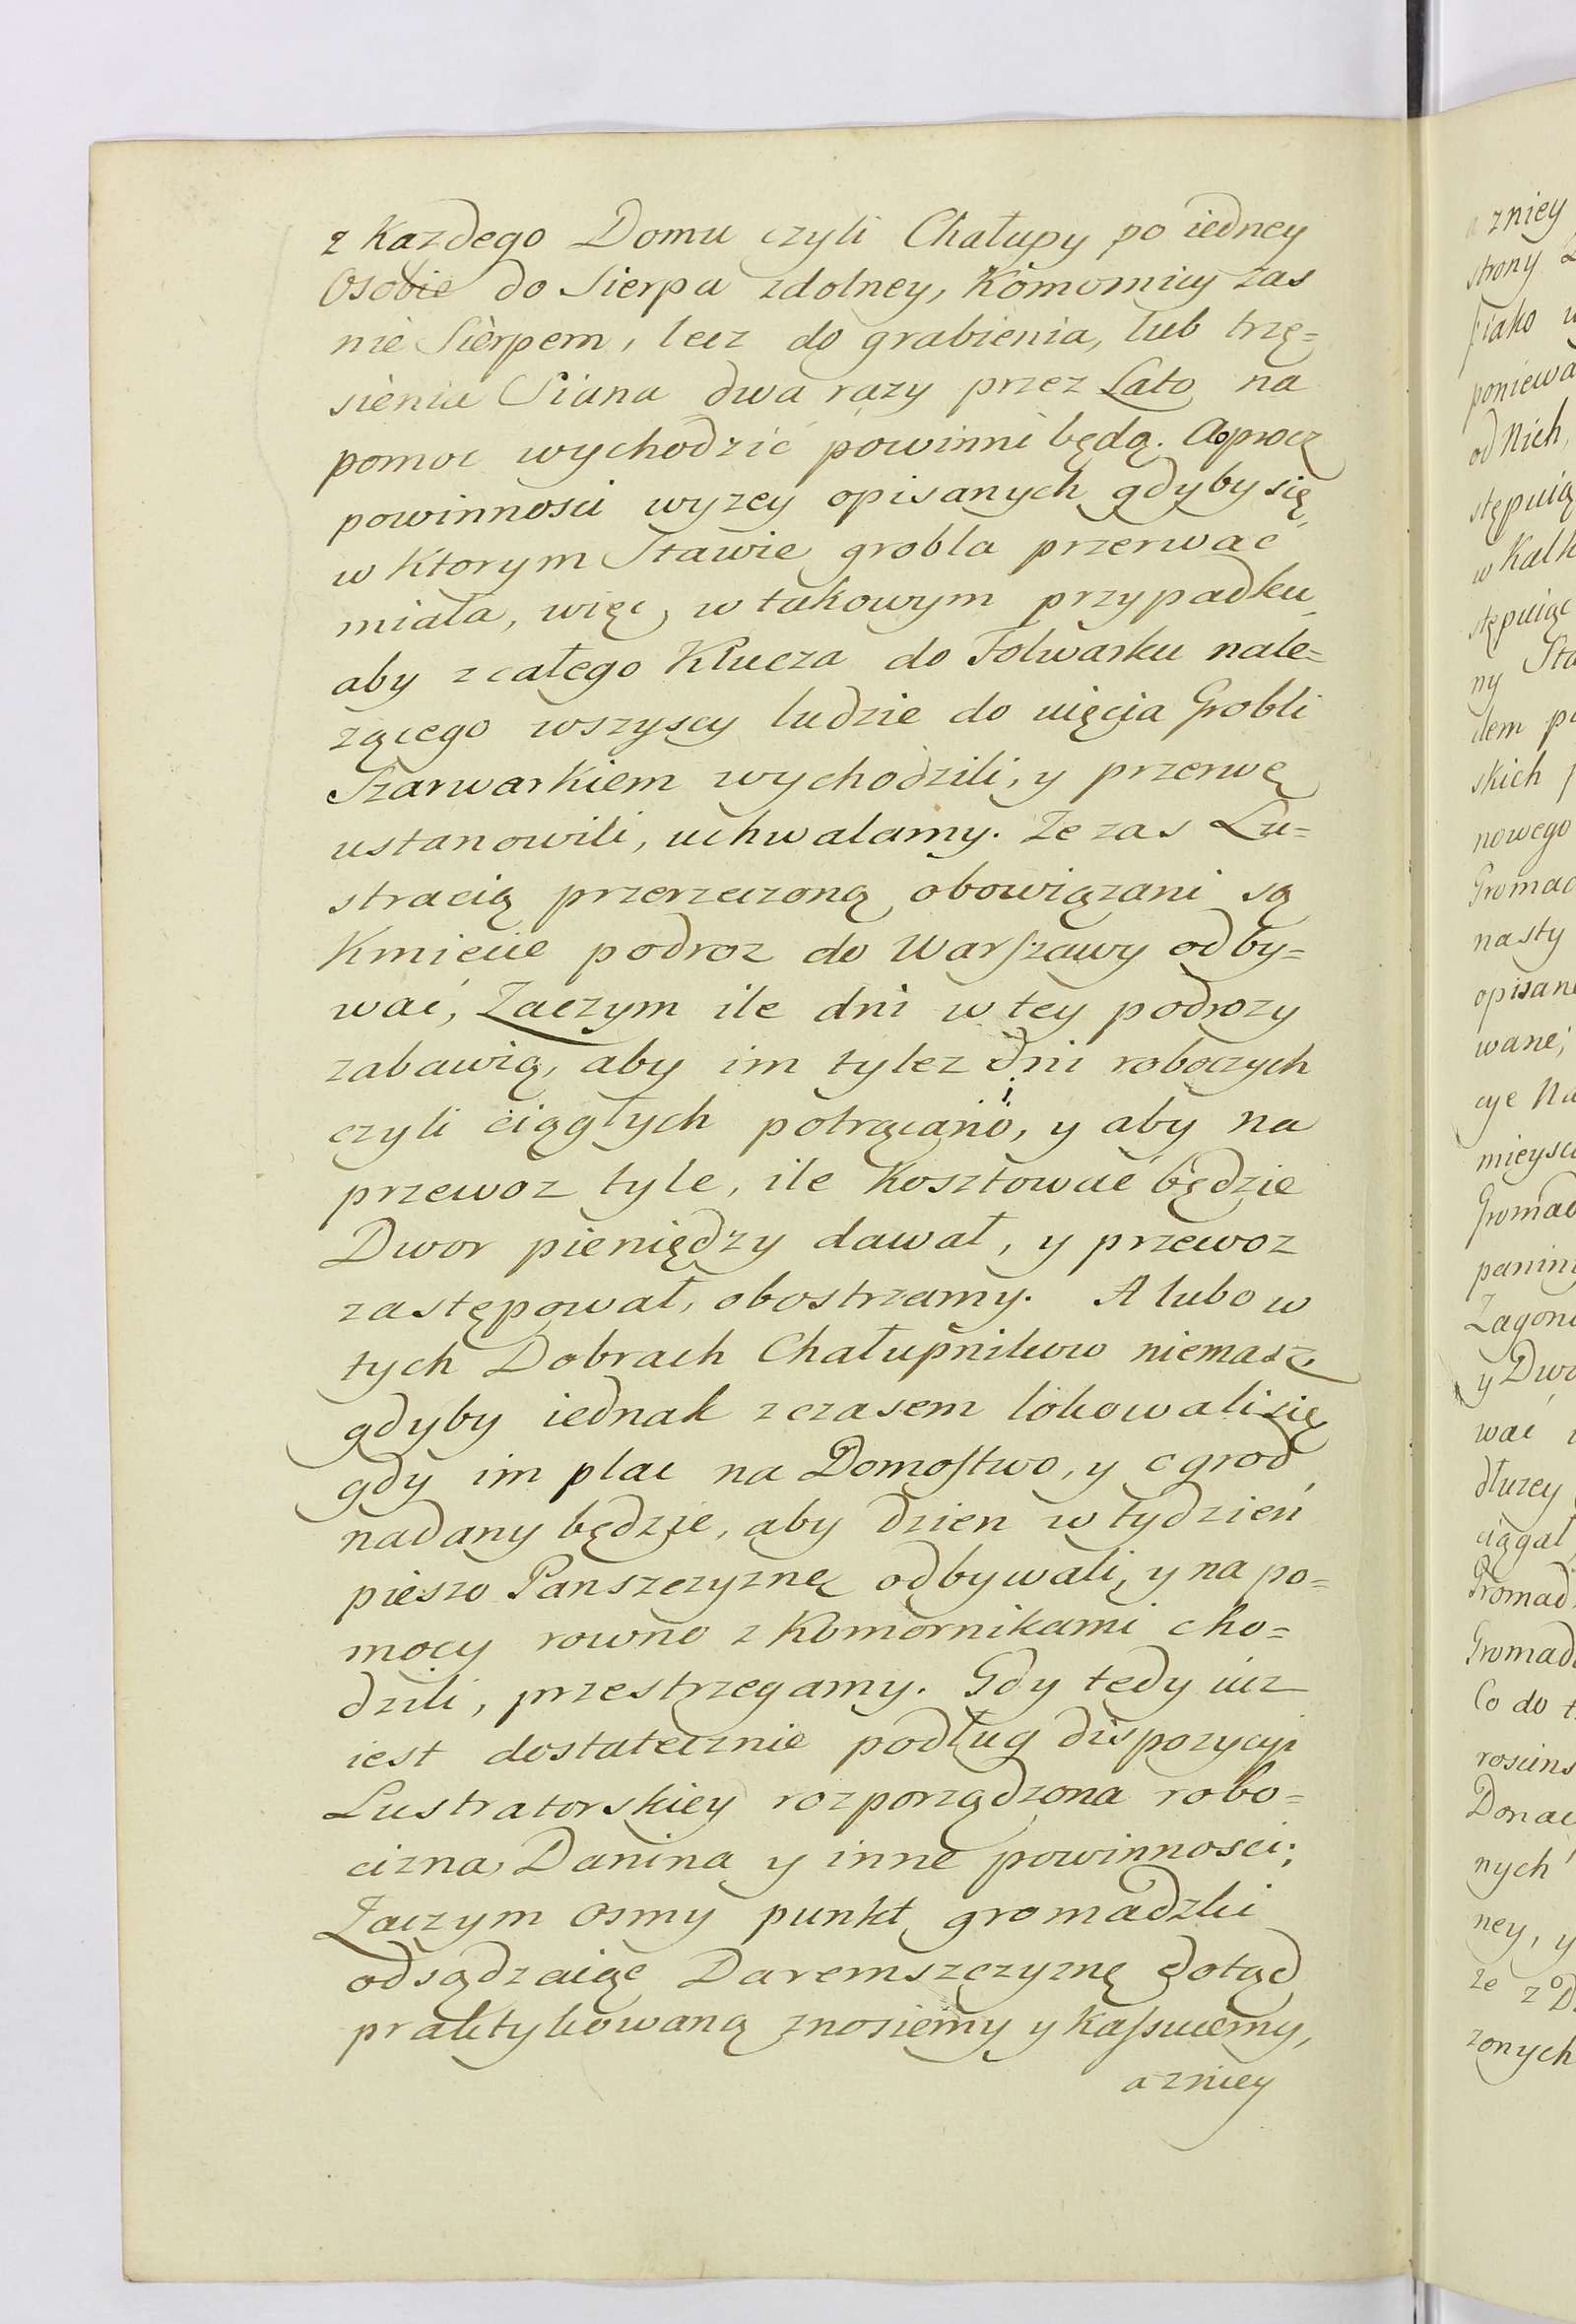 z Kazdego Domu czyli Chałupy po iedney
Osobie do Sierpa zdolney, Komornicy zas
nie Sierpem, lecz do grabienia, lub trzę=
sienia Siana dwa razy przez Lato na
pomoc wychodzić powinni będą. A oprocz
powinnosci wyzey opisanych gdyby się
w Ktorym Stawie grobla przerwać
miała, więc w takowym przypadku
aby z całego Klucza do Folwarku nale=
zącego wszyscy ludzie do uięcia Grobli
Szarwarkiem wychodzili, y przerwę
ustanowili, uchwalamy. Ze zas Lu=
stracią przerzeczoną obowiązani są
Kmiecie podroz do Warszawy odby=
wać, Zaczym ile dni w tey podrozy
zabawią, aby im tylez dni roboczych
czyli ciągłych potrącano, y aby na
przewoz tyle, ile Kosztować będzie
Dwor pieniędzy dawał, y przewoz
zastępował, obostrzamy. A lubo w
tych Dobrach Chałupnikow niemasz
gdyby iednak z czasem lokowali się
gdy im plac na Domostwo, y ogrod
nadany będzie, aby dzien w tydzień
pieszo Panszczyznę odbywali, y na po=
mocy rowno z Komornikami cho=
dzili, przestrzegamy. Gdy tedy iuz
iest dostatecznie podług dispozycyi
Lustratorskiey rozporządzona robo=
cizna, Danina y inne powinnosci;
Zaczym osmy punkt gromadzki
odsądzaiąc Daremszczyznę dotąd
praktykowaną znosiemy y Kassuiemy,
a zniey
a zniey
strony
iako
poniewa
od Nich,
stępuią
w Kalk
stępuiąc
ny Sta
dem
skich
nowego
Gromad
nasty
opisan
wane;
cye Na
mieysc
Gromad
panin
Zagon
y Dwo
wać
dłuzey
ciągał
Gromad
Gromad
Co do
roscins
Donac
nych
ney, y
ze z D
zonych